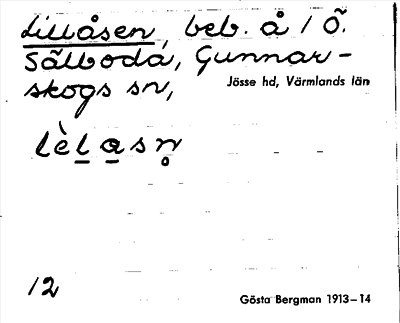 Lillåsen, beb. å 1 Ö.
Sälboda, Gunnar-
skogs sn,
Jösse hd, Värmlands län
lèl̲a̲sn̥
12
Gösta Bergman 1913–14